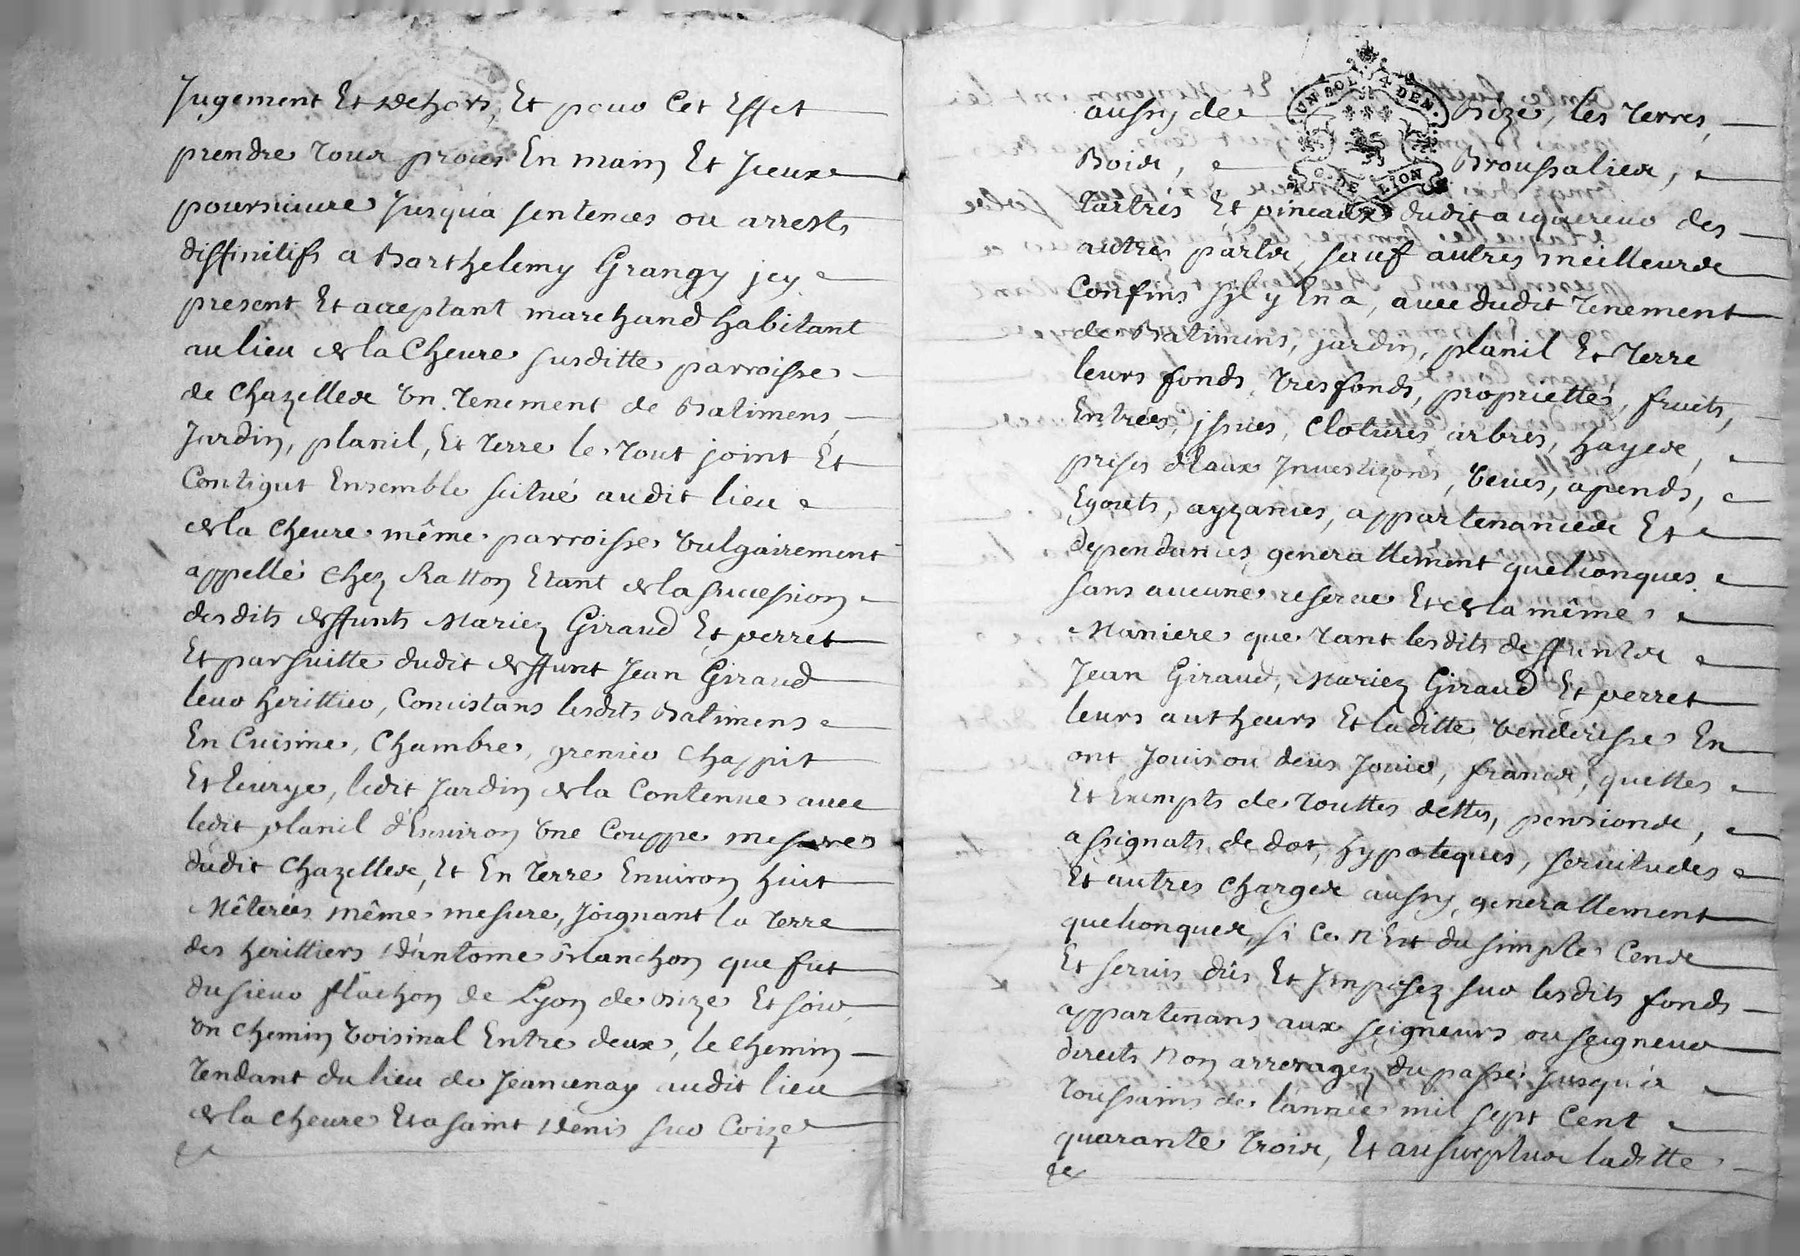 Jugement Et dehors, Et pour Cet Effet
prendre tour procés En main Et Iceux
poursuiure Jusqu'a sentences ou arrests
diffinitifs a Barthelemy Grangy jcy
present Et acceptant marchand habitant
au lieu de la Cheure susditte parroisse
de Chazelles un tenement de Batimens,
Jardin, planil, Et terre le tout joint Et
Contigut Ensemble scitué audit lieu
de la Cheure même parroisse vulgairement
appellé Chez Ratton Etant de la succession
desdits deffunts Mariez Giraud Et perret
Et par suitte dudit deffunt Jean Giraud
leur herittier, Consistans lesdits Batimens
En Cuisine, Chambre, grenier Chappit
Et Ecurye, ledit Jardin de la Contenue auec
ledit planil d'Enuiron Une Couppe mesure
dudit Chazelles, Et En terre Enuiron huit
Mêterées même mesure, Joignant la terre
des herittiers d'antoine Blanchon que fut
du sieur flachon de Lyon de Bize Et soir,
un chemin voisinal Entre deux, le chemin
tendant du lieu de Jeancenay audit lieu
de la Cheure Et a saint denis sur Coize
UN SOL 4 DEN.
G. DE LION
aussy de Bize, les terres,
Bois, Broussalies,
tartres Et pineaux dudit acquereur des
autres parts, sauf autres meilleurs
Confins s'jl y En a, auec dudit tenement
de Batimens, jardin, planil Et terre
leurs fonds, tresfonds, propriettés, fruits,
Entrées, jssues, Clotures arbres, hayes,
prises d'Eaux Inuestizons, veues, apends,
Egouts, ayzances, appartenances Et
dependances generallement quelconques
sans aucune reserue Et de la même
Maniere que tant lesdits deffunts
Jean Giraud, Mariez Giraud Et perret
leurs autheurs Et laditte venderisse En
ont Jouis ou deus Jouir, francs, quittes
Et Exempts de touttes dettes, pensions,
assignats de dot, hypoteques, seruitudes
Et autres charges aussy generallement
quelconques, si Ce n'Est du simple Cens
Et seruis dûs Et Imposez sur lesdits fonds
appartenans aux seigneurs ou seigneur
directs non arreragez du passé jusqu'a
toussains de l'année mil sept Cent
quarante trois, Et au surplus laditte